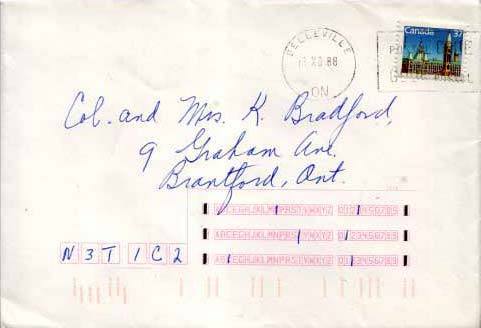 BELLEVILLE
XII 88
ON
Canada 37
Col. and Mrs. K. Bradford,
9 Graham Ave.
Brantford, Ont.
ABCEGHJKLMNPRSTVWXYZ 0123456789
ABCEGHJKLMNPRSTVWXYZ 0123456789
ABCEGHJKLMNPRSTVWXYZ 0123456789
N3T 1C2